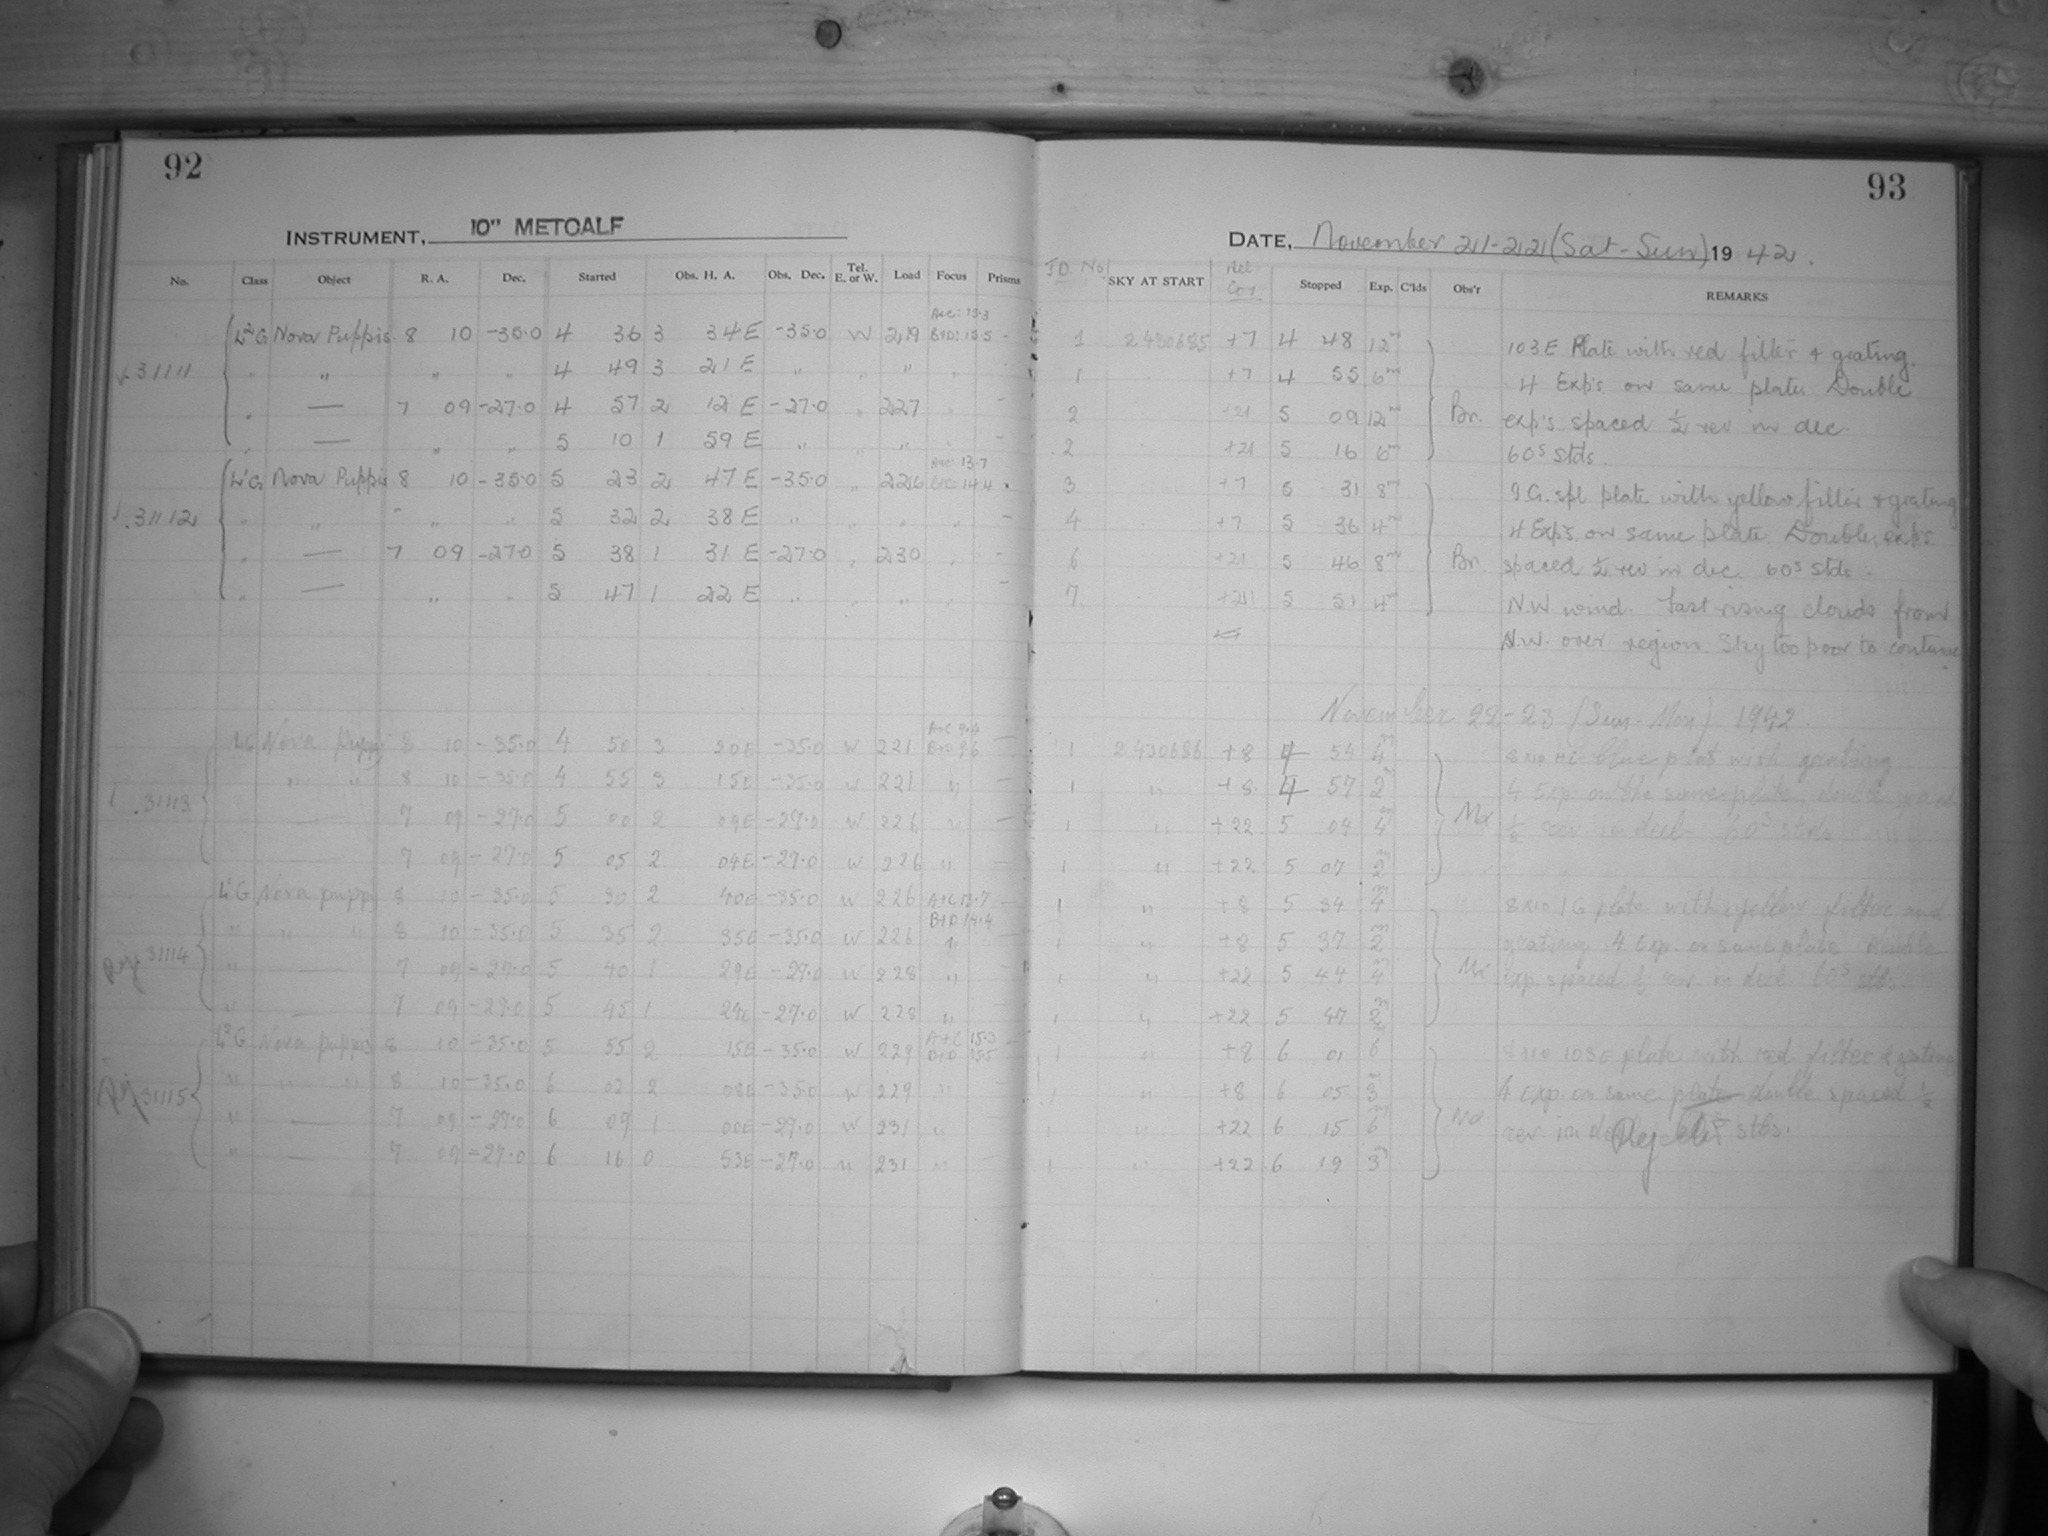 92
INSTRUMENT, 10" METCALF
No. Class Object R. A. Dec. Started Obs. H. A. Obs. Dec. Tel. E. or W. Load Focus Prisms
31111 L²G Nova Puppis 8 10 -35.0 4 36 3 34 E -35.0 W 219 A+C: 15.3 B+D: 15.5 -
" " " " 4 49 3 21 E " " " "
" — 7 09 -27.0 4 57 2 12 E -27.0 " 227 " -
" — " " 5 10 1 59 E " " " " -
31112 L'G Nova Puppis 8 10 -35.0 5 23 2 47 E -35.0 " 226 A+C: 13.7 B+D: 14.4
" " " " 5 32 2 38 E " " " " -
" — 7 09 -27.0 5 38 1 31 E -27.0 " 230 " -
" — " " 5 47 1 22 E " " " " -
31113 LG Nova Puppis 8 10 -35.0 4 50 3 20E -35.0 W 221 A+C 9.4 B+D 9.6 -
" " 8 10 -35.0 4 55 3 15E -35.0 W 221 " -
— 7 09 -27.0 5 00 2 09E -27.0 W 226 " -
— 7 09 -27.0 5 05 2 04E -27.0 W 226 " -
Rej. 31114 L'G Nova puppis 8 10 -35.0 5 30 2 40E -35.0 W 226 A+C 13.7 -
" " " 8 10 -35.0 5 35 2 35E -35.0 W 226 B+D 14.4 " -
" — 7 09 -27.0 5 40 1 29E -27.0 W 228 " -
" — 7 09 -27.0 5 45 1 24E -27.0 W 228 " -
Rej 31115 L²G Nova puppis 8 10 -35.0 5 55 2 15E -35.0 W 229 A+C 15.3 B+D 15.5 -
" " " 8 10 -35.0 6 02 2 08E -35.0 W 229 " -
" — 7 09 -27.0 6 09 1 00E -27.0 W 231 " -
" — 7 09 -27.0 6 16 0 53E -27.0 " 231 " -
93
DATE, November 21-22 (Sat-Sun) 1942.
J.D. No SKY AT START Hel. Cor Stopped Exp. C'lds Obs'r REMARKS
1 2430685 +7 4 48 12m 103E Plate with red filter & grating.
1 " +7 4 55 6m 4 Exp's. on same plate. Double
2 " +21 5 09 12m Br. exp's spaced ½ rev in dec.
2 " +21 5 16 6m 60s stds.
3 " +7 5 31 8m I.G. spl. plate with yellow filter & grating
4 " +7 5 36 4m 4 Exp's. on same plate. Double exp's.
6 " +21 5 46 8m Br. spaced ½ rev in dec. 60s stds.
7 " +21 5 51 4m N.W. wind. Fast rising clouds from
N.W. over region. Sky too poor to continue.
November 22-23 (Sun-Mon) 1942.
1 2430686 +8 4 54 4m 8x10 Hi blue plate with grating
1 " +8 4 57 2m 4 Exp on the same plate, double
1 " +22 5 04 4m Md ½ rev in decl. 60s stds
1 " +22 5 07 2m
1 " +8 5 34 4m 8x10 IG plate with yellow filter and
1 " +8 5 37 2m grating. 4 Exp. on same plate double
1 " +22 5 44 4m Md exp. spaced ½ rev. in decl. 60s stds.
1 " +22 5 47 2m
1 " +8 6 01 6m 8x10 103E plate with red filter & grating
1 " +8 6 05 3m 4 Exp. on same plate double spaced ½
1 " +22 6 15 6m Md rev in decl. 60s stds.
Rejected
1 " +22 6 19 3m